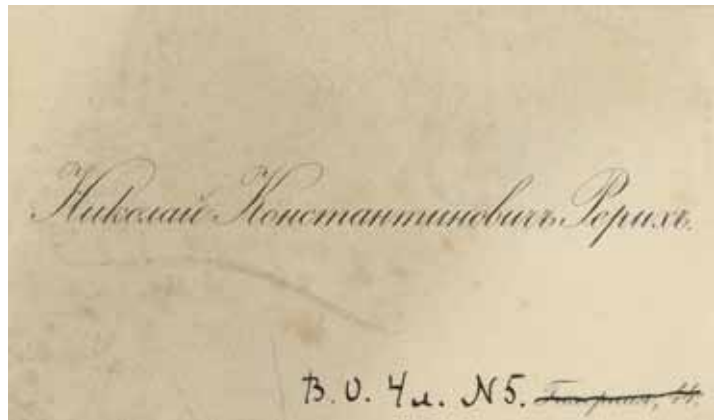 Николай Константиновичъ Рерихъ.
В. О. 4 л. N 5.